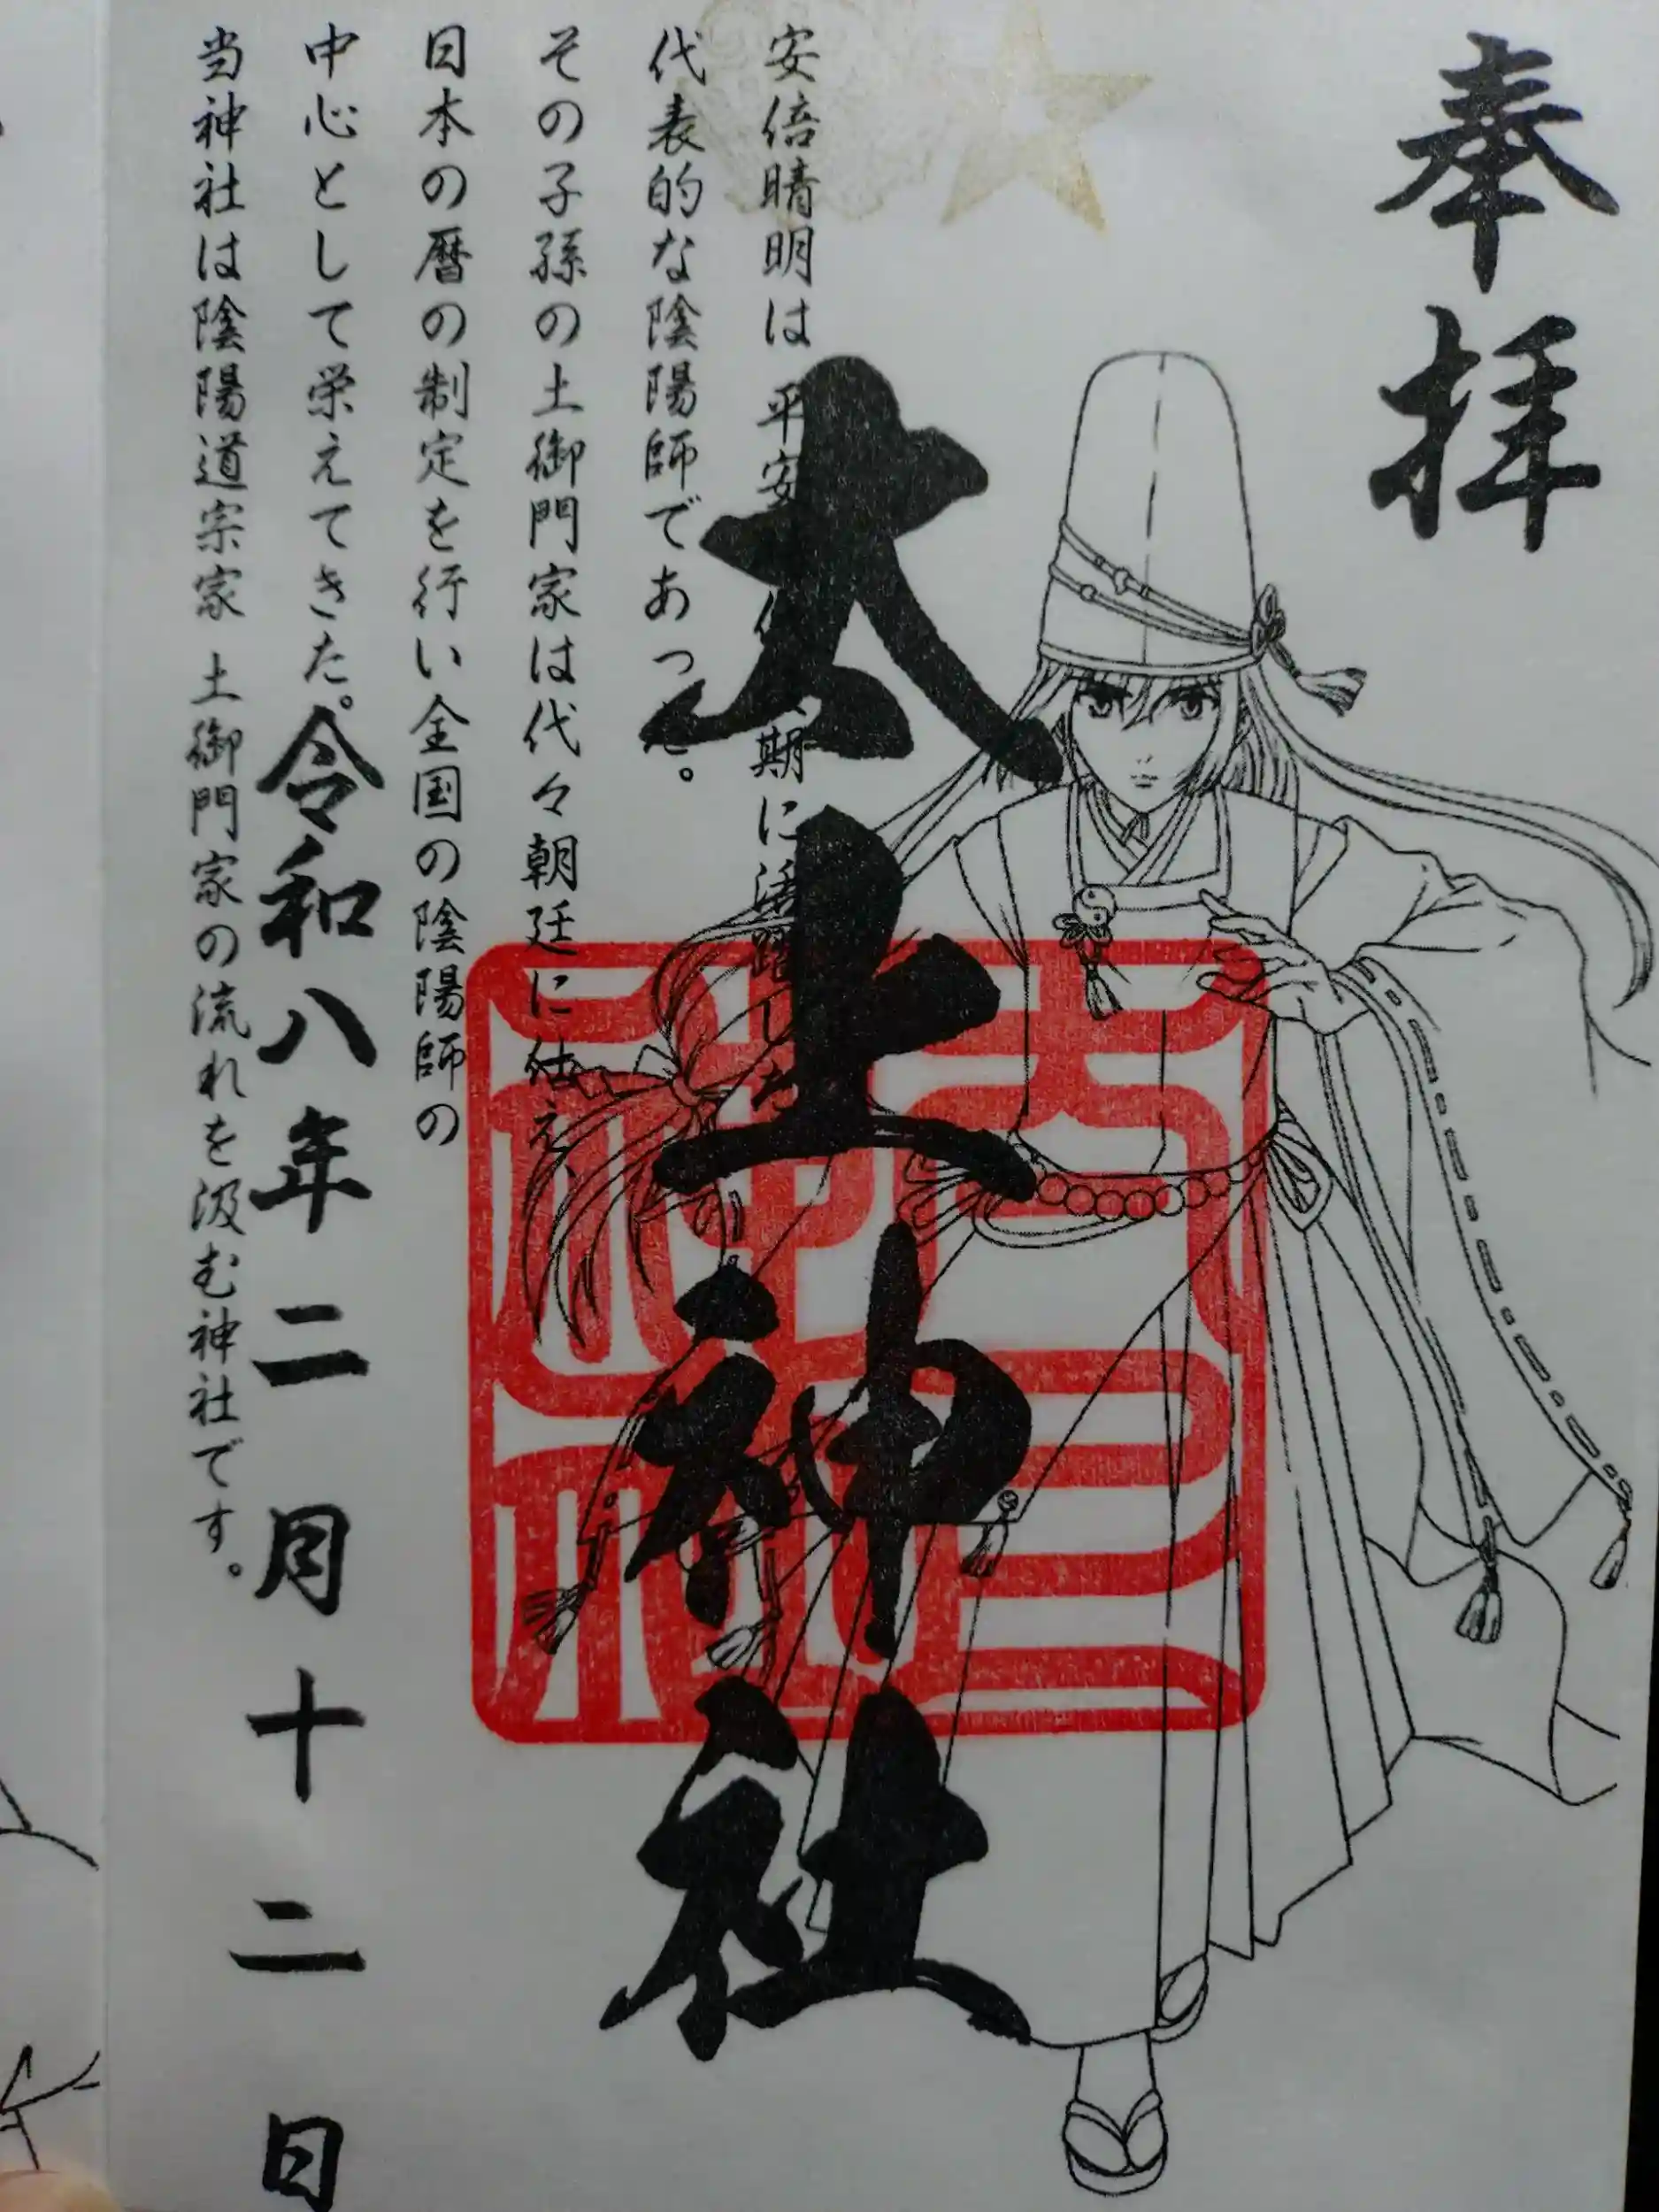 奉拝
太上神社
安倍晴明は 平安 期に活躍した
代表的な陰陽師であった。
その子孫の土御門家は代々朝廷に仕え、
日本の暦の制定を行い全国の陰陽師の
中心として栄えてきた。
令和八年二月十二日
当神社は陰陽道宗家 土御門家の流れを汲む神社です。